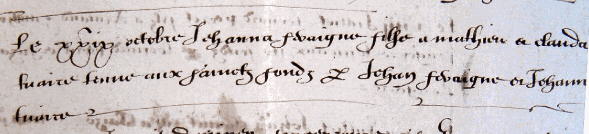 Le xxix octobre Jehanna fevaigne filhe a mathieu et clauda
tuaire tenue aux sainctz fondz p Jehan fevaigne et Jehann
tuaire